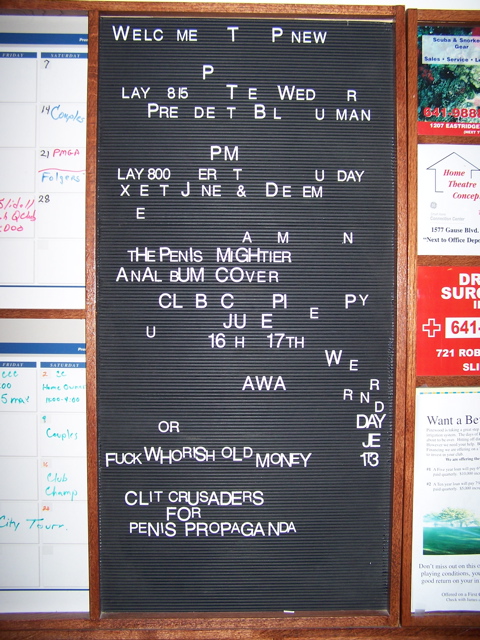 WELC ME T P NEW
P
LAY 815 TE WED R
PRE DE T BL U MAN
PM
LAY 800 ER T U DAY
X E T JNE & D E EM
E
A M N
THE PENIS MIGHTIER
ANAL BUM COVER
CL B C PI E PY
JU E
U 16 H 17TH
WE
AWA
R R N D
DAY
OR JE
FUCK WHORISH OLD MONEY 113
CLIT CRUSADERS
FOR
PENIS PROPAGANDA
FRIDAY SATURDAY
7
14 Couples
21 PMGA
Folgers
28
FRIDAY SATURDAY
Home Owner
Couples
Club
Champ
City Tourn.
Scuba & Snorkel
Gear
Sales • Service •
641-988
1307 EASTRIDGE
Home
Theatre
Concep
1577 Gause Blvd.
"Next to Office Depo
DR
SURG
641-
721 ROB
SLI
Want a Be
Don't miss out on this
playing conditions, you
good return on your in